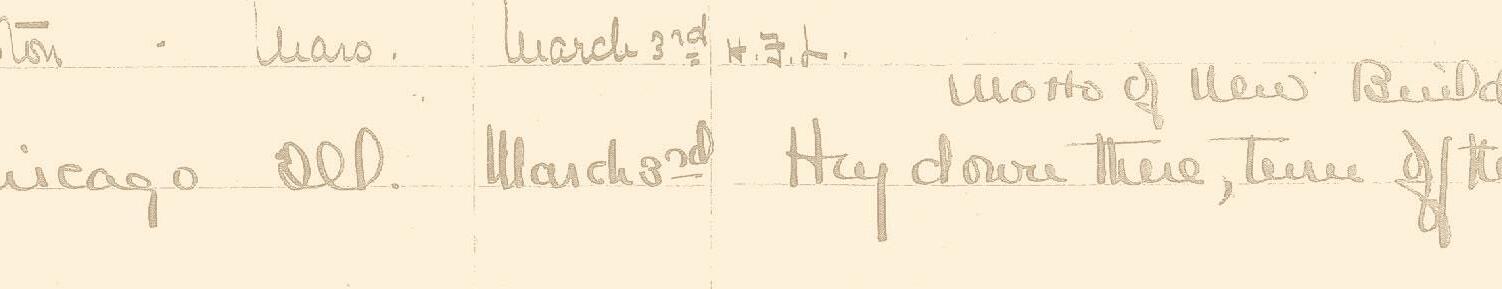 ton - Mass. March 3rd H.F.L.
Motto of New Build
hicago Ill. March 3rd Hey down there, turn off the